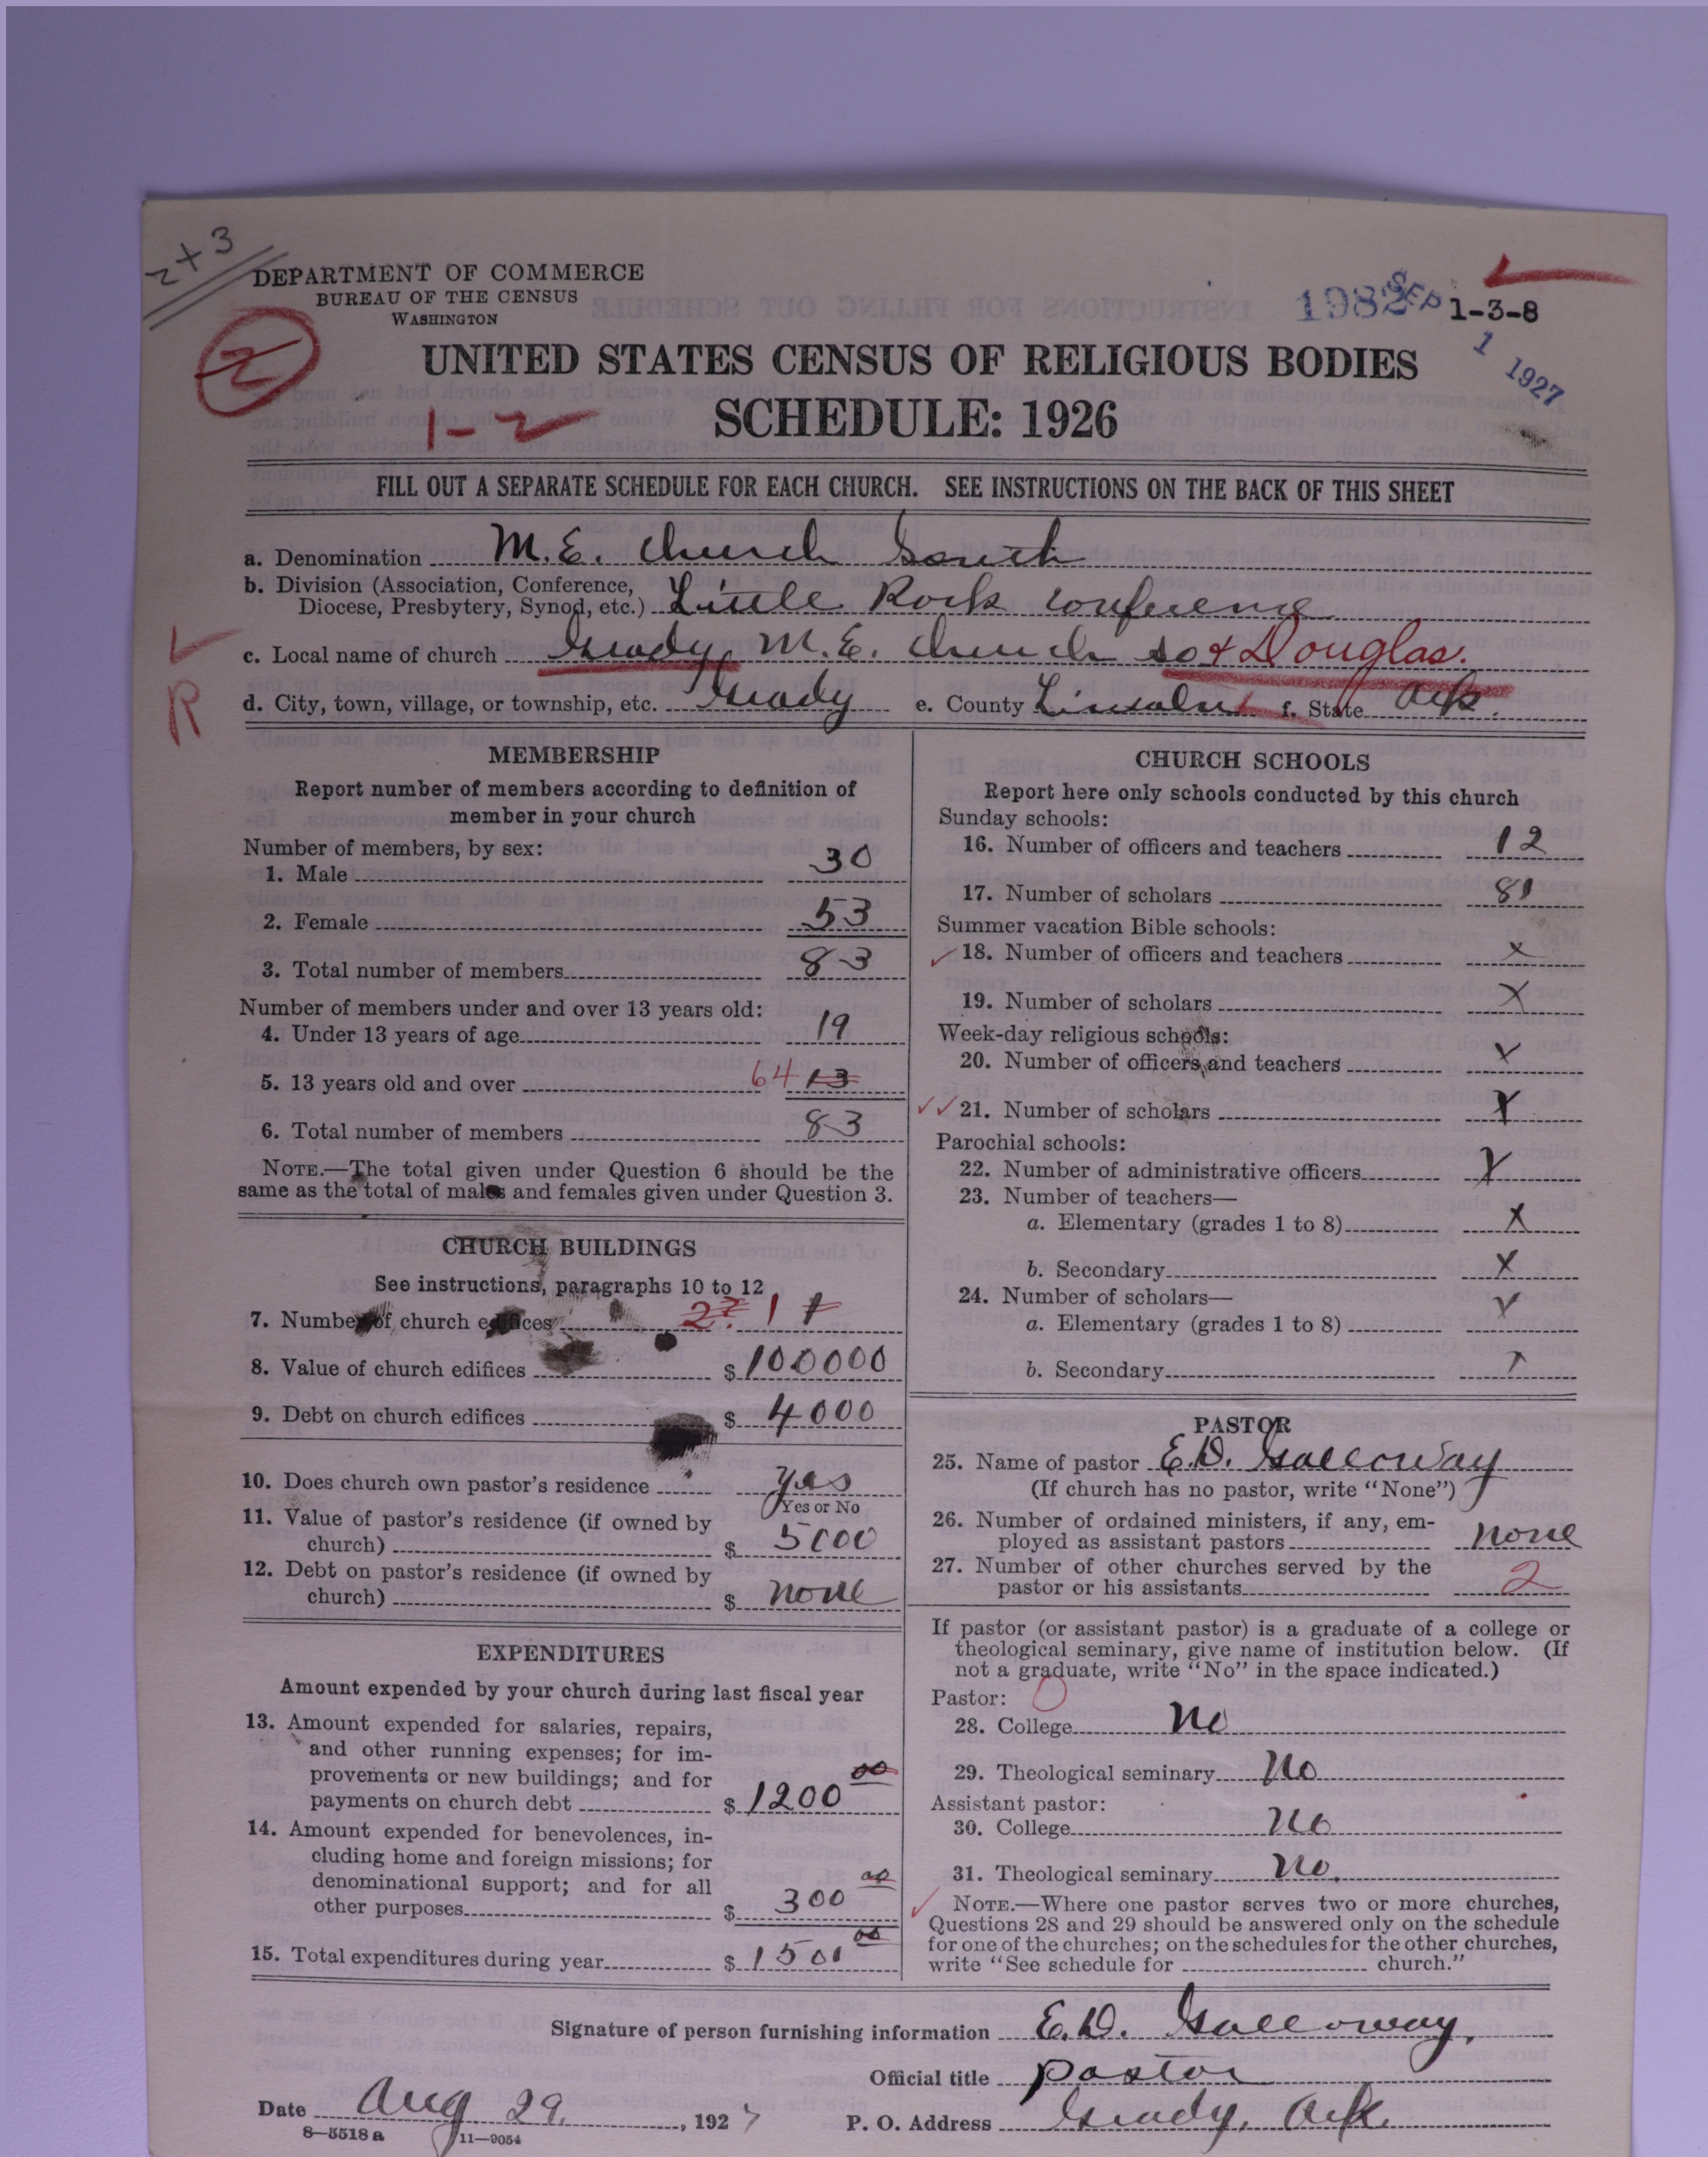 2+3
DEPARTMENT OF COMMERCE
BUREAU OF THE CENSUS
WASHINGTON
1982 SEP 1 1927
1-3-8
2
UNITED STATES CENSUS OF RELIGIOUS BODIES
1-2
SCHEDULE: 1926
FILL OUT A SEPARATE SCHEDULE FOR EACH CHURCH. SEE INSTRUCTIONS ON THE BACK OF THIS SHEET
a. Denomination M.E. Church South
b. Division (Association, Conference,
Diocese, Presbytery, Synod, etc.) Little Rock Conference
c. Local name of church Grady M.E. Church so + Douglas.
R
d. City, town, village, or township, etc. Grady e. County Lincoln f. State Ark.
MEMBERSHIP
Report number of members according to definition of
member in your church
Number of members, by sex:
1. Male 30
2. Female 53
3. Total number of members 83
Number of members under and over 13 years old:
4. Under 13 years of age 19
5. 13 years old and over 64 13
6. Total number of members 83
NOTE.—The total given under Question 6 should be the
same as the total of males and females given under Question 3.
CHURCH BUILDINGS
See instructions, paragraphs 10 to 12
7. Number of church edifices 2? 1 1
8. Value of church edifices $ 100000
9. Debt on church edifices $ 4000
10. Does church own pastor's residence yes
Yes or No
11. Value of pastor's residence (if owned by
church) $ 5000
12. Debt on pastor's residence (if owned by
church) $ none
EXPENDITURES
Amount expended by your church during last fiscal year
13. Amount expended for salaries, repairs,
and other running expenses; for im-
provements or new buildings; and for
payments on church debt $ 1200 00
14. Amount expended for benevolences, in-
cluding home and foreign missions; for
denominational support; and for all
other purposes $ 300 00
15. Total expenditures during year $ 1500 00
CHURCH SCHOOLS
Report here only schools conducted by this church
Sunday schools:
16. Number of officers and teachers 12
17. Number of scholars 81
Summer vacation Bible schools:
18. Number of officers and teachers x
19. Number of scholars x
Week-day religious schools:
20. Number of officers and teachers x
21. Number of scholars x
Parochial schools:
22. Number of administrative officers x
23. Number of teachers—
a. Elementary (grades 1 to 8) x
b. Secondary x
24. Number of scholars—
a. Elementary (grades 1 to 8) x
b. Secondary x
PASTOR
25. Name of pastor E.D. Galloway
(If church has no pastor, write "None")
26. Number of ordained ministers, if any, em-
ployed as assistant pastors none
27. Number of other churches served by the
pastor or his assistants 2
If pastor (or assistant pastor) is a graduate of a college or
theological seminary, give name of institution below. (If
not a graduate, write "No" in the space indicated.)
Pastor: 0
28. College No
29. Theological seminary No
Assistant pastor:
30. College No
31. Theological seminary No.
NOTE.—Where one pastor serves two or more churches,
Questions 28 and 29 should be answered only on the schedule
for one of the churches; on the schedules for the other churches,
write "See schedule for church."
Signature of person furnishing information E.D. Galloway,
Official title pastor
Date Aug 29, 1927 P. O. Address Grady, Ark.
8—5518a 11—9054